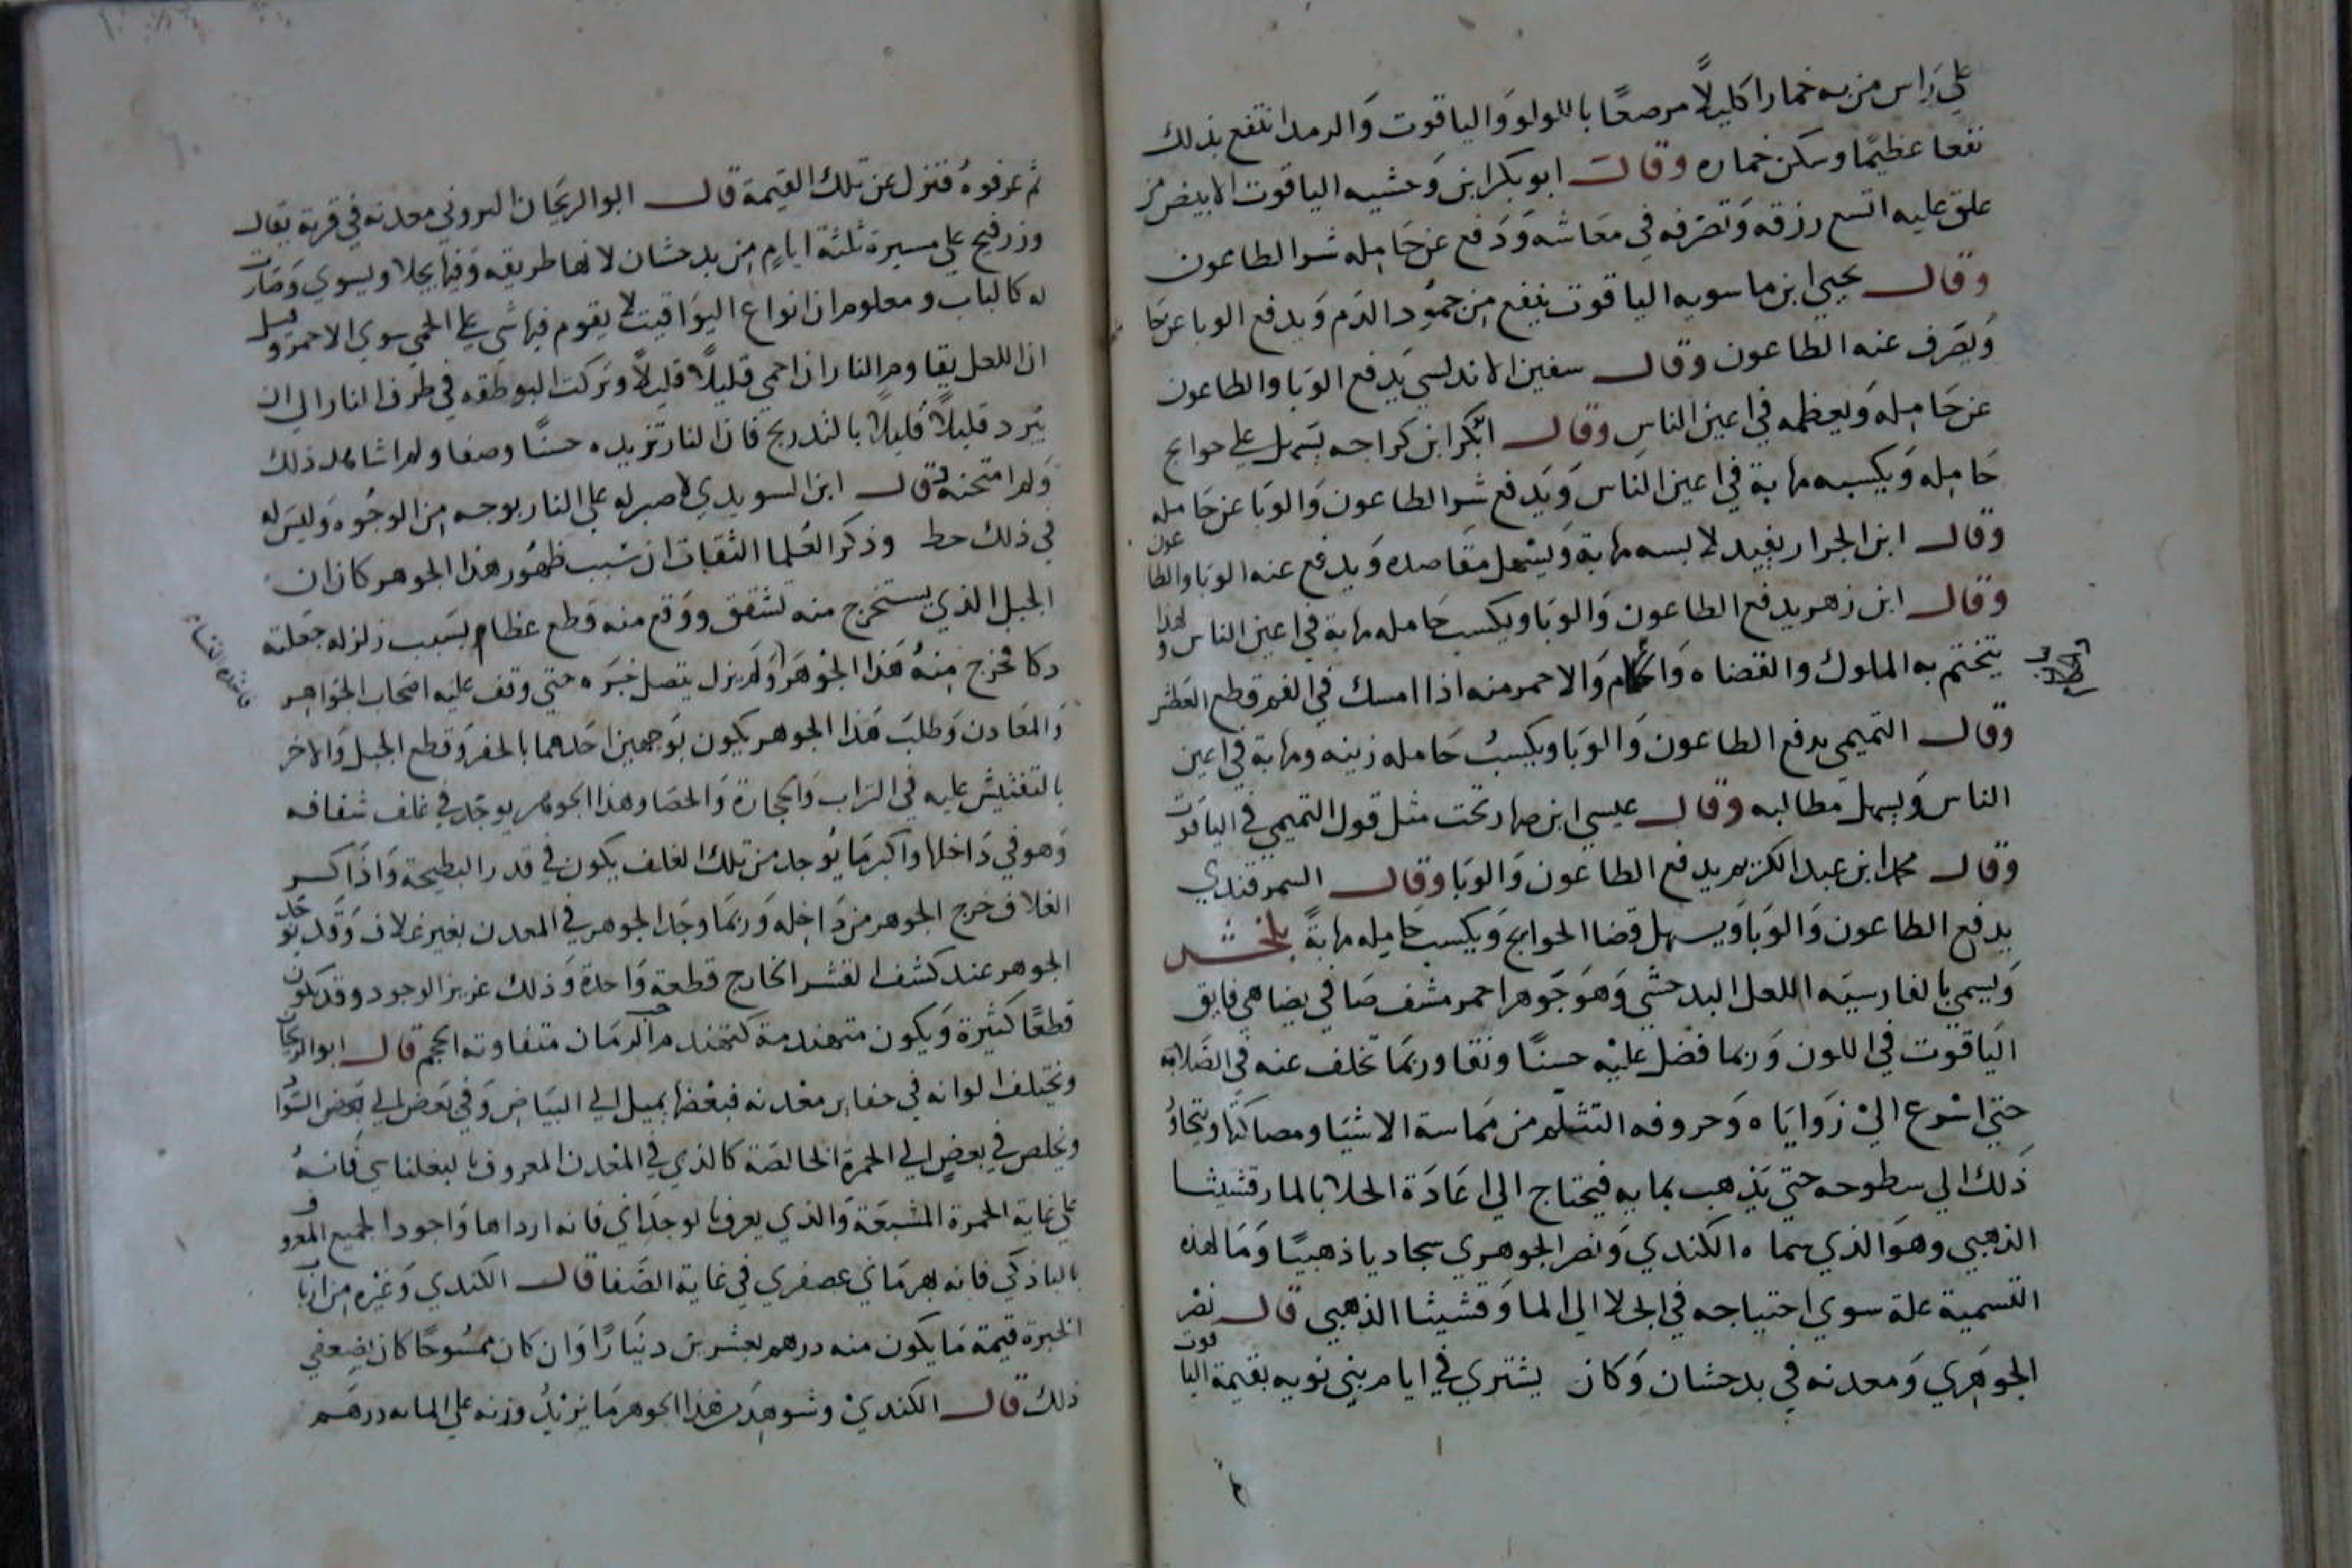 علي راس من به خمار اكليلًا مرصعًا باللولو وَالياقوت وَالرمد انتفع بذلك
نفعا عظيمًا وسكن خماره وقالت ابو بكر ابن وَحشيه الياقوت الابيض من
علق عليه اتسع رزقه وَتصرفه في مَعَاشه وَدَفع عن حَامِله شر الطاعون
وقال يحيي ابن ماسويه الياقوت ينفع مِن جمُود الدَم وَيدفع الوبا عن حا
وَيصَرف عنه الطاعون وقال سفين الاندلسي يَدفع الوَبا والطاعون
عن حَامِله وَيعظمه في اعين الناس وقال ابكر ابن كراجه يسَهل علي حوايج
حَامِله وَيكسبه مهابة في اعين الناس وَيَدفع شر الطاعون وَالوبَا عن حَامله
وقال ابن الجرار يفيد لابسه مهابة وَيسَهل مقَاصده وَيدفع عنه الوبَا والطاعون
وقال ابن زهر يدفع الطاعون وَالوبَا ويكسب حَامله مهابة في اعين الناس ولهذا
يتختم به الملوك والقضاه وَالحكام وَالاحمر منه اذا امسك في الفم قطع العَطش
وقال التميمي يدفع الطاعون وَالوَبا ويكسبُ حَامله زينه ومهابة في اعين
الناس وَيسهل مطالبه وقال عيسي ابن صهاربخت مثل قول التميمي في الياقوت
وقال محمد ابن عبد الكريم يدفع الطاعون وَالوبَا وقال السمرقندي
يدفع الطاعون وَالوَبا وَيسهل قضا الحوايج وَيكسب حَامِله مهابةً بلخش
وَيسمي بالفارسيَه اللعل البدحشي وَهوَ جَوهر احمر مشف صَافي يضاهي فايق
اليَاقوت في اللون وَربما فضل عليْه حسنًا ونقا وربمَا تخلف عنه في الصَلابه
حتي اسْرع اليْ زَوايَاه وَحروفه التثلم من مَماسة الاشيَا ومصاكتها ويتجاوُز
ذَلك الي سطوحه حتي يَذهب بمايه فيحتاج الي اعَادَة الجلا بالمارقشيثا
الذهبي وهوَ الذي سماه الكندي وَنصر الجوهري سجاديا ذهبيًا وَمَا لهذه
التسمية علة سوي احتياجه في الجلا الي المارَقشيثا الذهبي قال نصْر
الجوَهَري وَمعدنه في بدحشان وَكان يشتري في ايام بني بويه بقيمة الياقوت
ثم عرفوهُ فنزل عن تلك القيمة قال ابو الريحان البيروني معدنه في قرية يقال
ورزفنج علي مسيرة ثلثة ايامٍ مِن بدحشان لانها طريقه وَفيها يجلا ويسوي وَصَارت
له كالباب ومعلوم ان انواع اليوَاقيت لا يقوم فيها شي علي الحمي سوي الاحمر وقيل
ان اللعل يقاوم النار ان احمي قليلًا قليلًا وَتركت البوطقه في طرف النار الي ان
يَبرد قليلًا قليلًا بالتدريج فان النار تزيده حسنًا وصفا ولم اشاهد ذلك
وَلم امتحنه قال ابن السويدي لا صبر له علي النار بوجه مِن الوجُوه وَليس له
في ذلك حط وذكر العُلما الثقات ان سَبب ظهُور هذا الجوهر كان ان
الجبل الذي يستخرج منه تشقق ووَقع منه قطع عظام بسَبب زلزله جعَلته
دكا فخرج مِنهُ هَذا الجوْهَر وَلم يزل يتصل خبَره حتي وقف عليه اصحاب الجوَاهر
وَالمعَادن وَطلبَ هَذا الجوهر يكون بوَجهين احَدهما بالحفر وَقطع الجبل وَالاخر
بالتفتيش عليه في التراب وَالحجارة وَالحصَا وهذا الجوهر يوجَد في غلف شفافه
وَهو في دَاخلها وَاكبر مَا يُوجد من تلك الغلف يكون في قدر البطيخة وَاذَا كسر
الغلاف خرج الجوهر من دَاخِله وَربمَا وجَد الجوهر في المعدن بغير غلاف وَقد يوجَد
الجوهر عند كشف القشر الخارج قطعة وَاحدة وَذلك عزيز الوجود وقد يكون
قطعًا كثيرة وَيكون متهندمة كتهندم حب الرمَان متفاوته الحجم قال ابو الريحان
وتختلف الوانه في حفاير معْدنه فبعْضها يميل الي البيَاض وَفي بَعَض الي بعَض السَوَاد
وَيخلص في بعَضٍ الي الحمرة الخالصَة كالذي في المعْدن المعروف فَانهُ
علي غاية الحمرة المشبعَة وَالذي يعرف فانه ارداها وَاجود الجميع المعروف
بالبازكي فانه بهرمَاني عصفري في غاية الصَفا قال الكندي وَغيْره مِن ارباب
الخبرة قيمة مَا يكون منه درهم بعشرين دنيَارًا وَان كان ممسُوحًا كان بضعفي
ذلك قال الكنديْ وشوهَد من هَذا الجوهر مَا يزيْدُ وزنه علي المايه درهَم